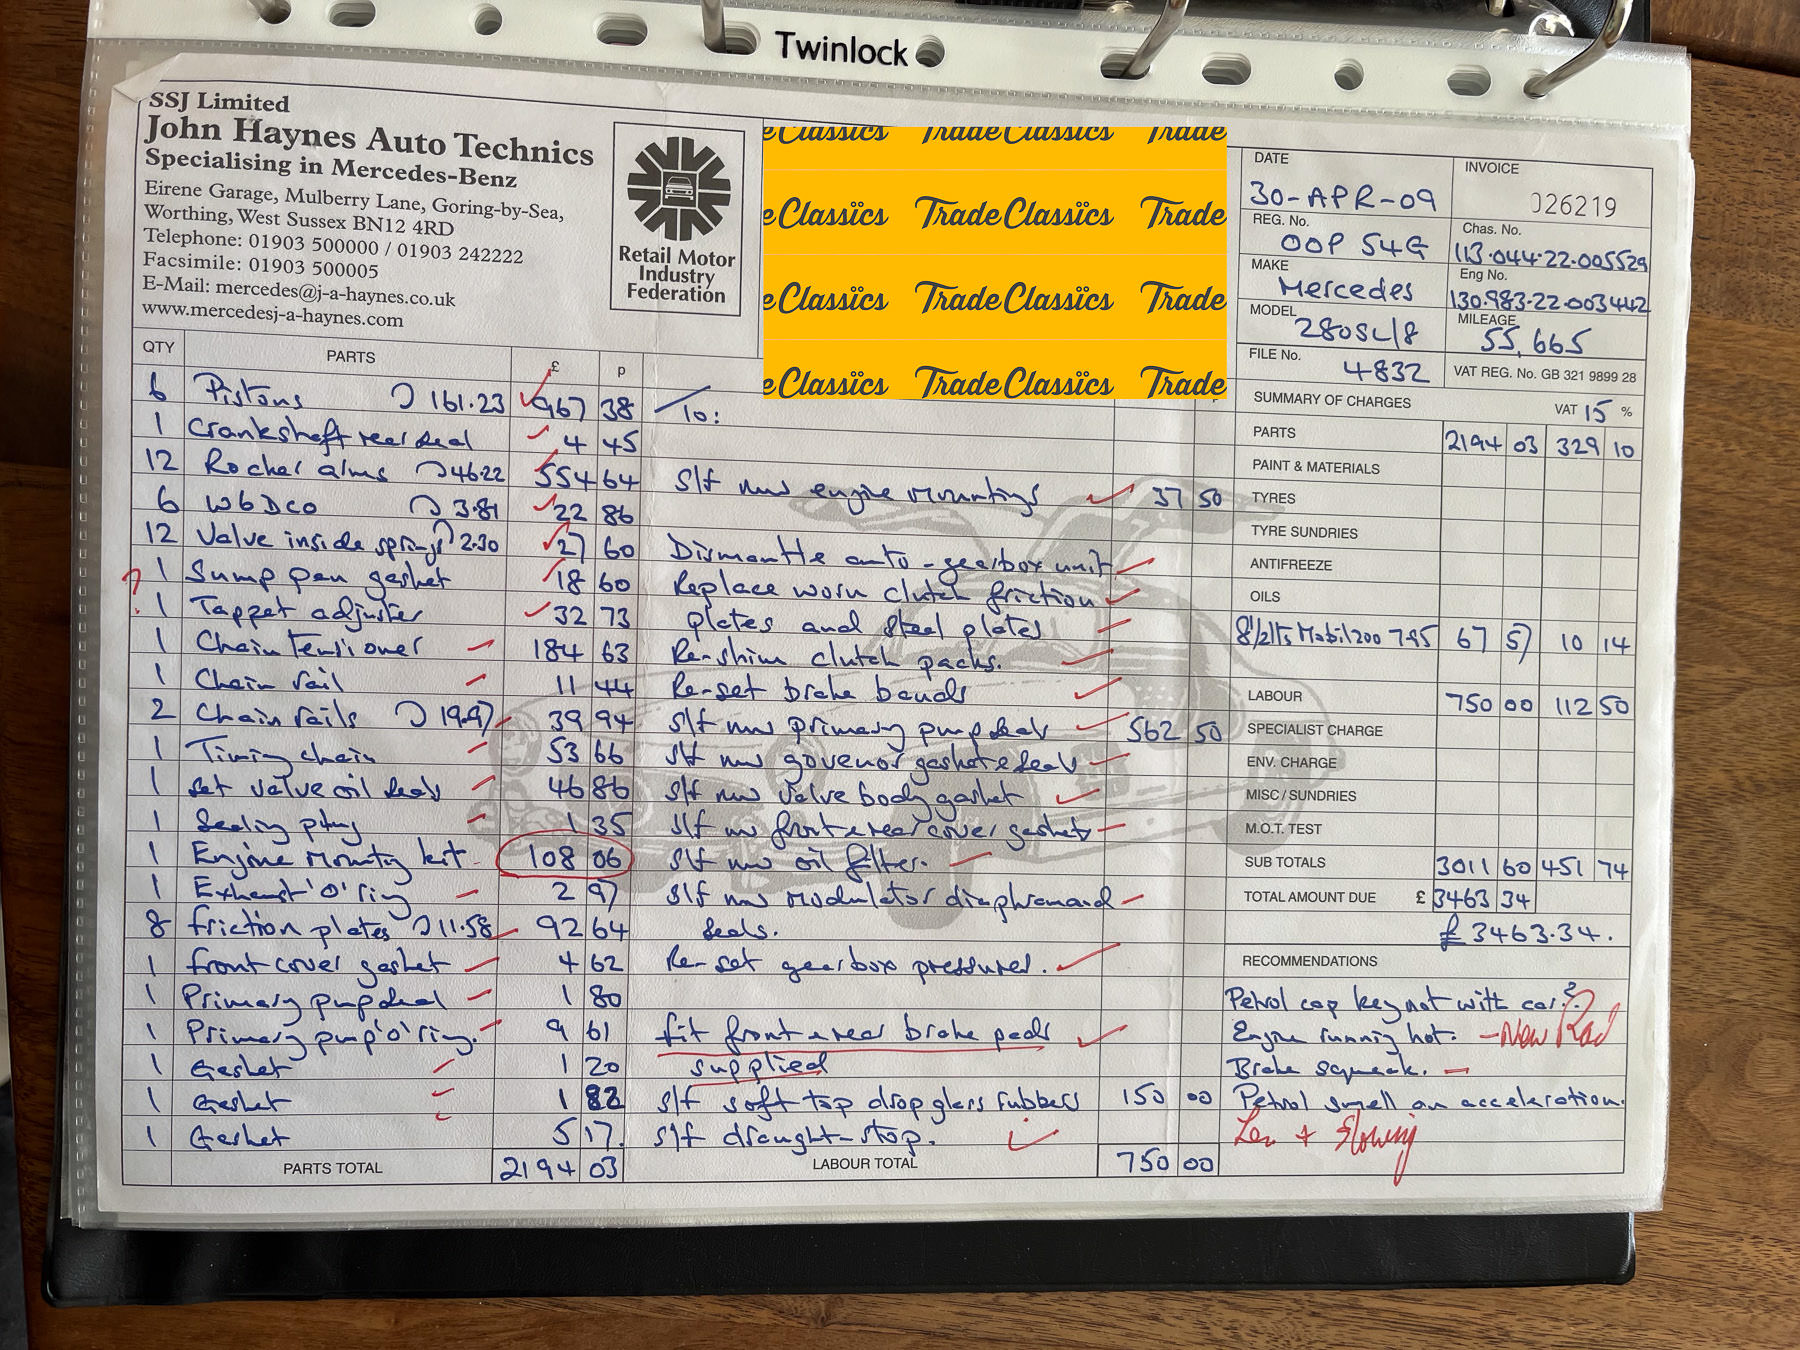 Twinlock
SSJ Limited
John Haynes Auto Technics
Specialising in Mercedes-Benz
Eirene Garage, Mulberry Lane, Goring-by-Sea,
Worthing, West Sussex BN12 4RD
Telephone: 01903 500000 / 01903 242222
Facsimile: 01903 500005
E-Mail: mercedes@j-a-haynes.co.uk
www.mercedesj-a-haynes.com
Retail Motor
Industry
Federation
e Classics Trade Classics Trade
e Classics Trade Classics Trade
e Classics Trade Classics Trade
e Classics Trade Classics Trade
DATE 30-APR-09
INVOICE 026219
REG. No. OOP 54G
Chas. No. 113.044.22.005529
MAKE Mercedes
Eng No. 130.983.22.003442
MODEL 280SL/8
MILEAGE 55,665
FILE No. 4832
VAT REG. No. GB 321 9899 28
QTY PARTS £ p
6 Pistons 161.23 967 38
1 Crankshaft rear seal 4 45
12 Rocker arms 46.22 554 64
6 W6DCO 3.81 22 86
12 Valve inside springs 2.30 27 60
? 1 Sump pan gasket 18 60
1 Tappet adjuster 32 73
1 Chain tensioner 184 63
1 Chain rail 11 44
2 Chain rails 19.97 39 94
1 Timing chain 53 66
1 Set valve oil seals 46 86
1 Sealing plug 1 35
1 Engine mounting kit 108 06
1 Exhaust 'O' ring 2 97
8 friction plates 11.58 92 64
1 front cover gasket 4 62
1 Primary pump seal 1 80
1 Primary pump 'O' ring. 9 61
1 Gasket 1 20
1 Gasket 1 82
1 Gasket 5 17.
PARTS TOTAL 2194 03
To:
S/f new engine mountings 37 50
Dismantle auto-gearbox unit
Replace worn clutch friction
plates and steel plates
Re-shim clutch packs.
Re-set brake bands
s/f new primary pump seal 562 50
s/f new govenor gasket & seals
s/f new valve body gasket
s/f new front & rear cover gaskets
s/f new oil filter.
s/f new modulator diaphram and
seals.
Re-set gearbox pressures.
fit front & rear brake pads
supplied
s/f soft top drop glass rubbers 150 00
s/f draught-stop.
LABOUR TOTAL 750 00
SUMMARY OF CHARGES VAT 15 %
PARTS 2194 03 329 10
PAINT & MATERIALS
TYRES
TYRE SUNDRIES
ANTIFREEZE
OILS
8 1/2 lts Mobil 200 7.95 67 57 10 14
LABOUR 750 00 112 50
SPECIALIST CHARGE
ENV. CHARGE
MISC / SUNDRIES
M.O.T. TEST
SUB TOTALS 3011 60 451 74
TOTAL AMOUNT DUE £ 3463 34
£3463.34.
RECOMMENDATIONS
Petrol cap key not with car.?
Engine running hot. - New Rad
Brake squeak. -
Petrol smell on acceleration.